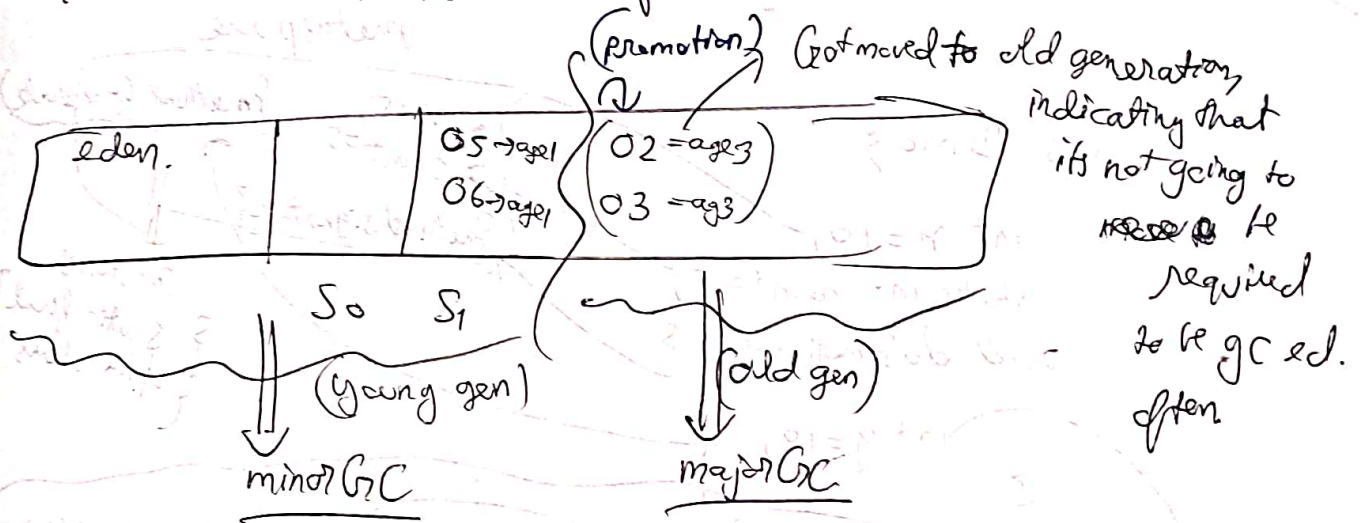 (promotion) Got moved to old generation,
indicating that
its not going to
be
required
to be gc ed.
often
eden.
O5→age1
O6→age1
O2 =age3
O3 =ag3
S0 S1
(young gen)
(old gen)
minor GC
major GC